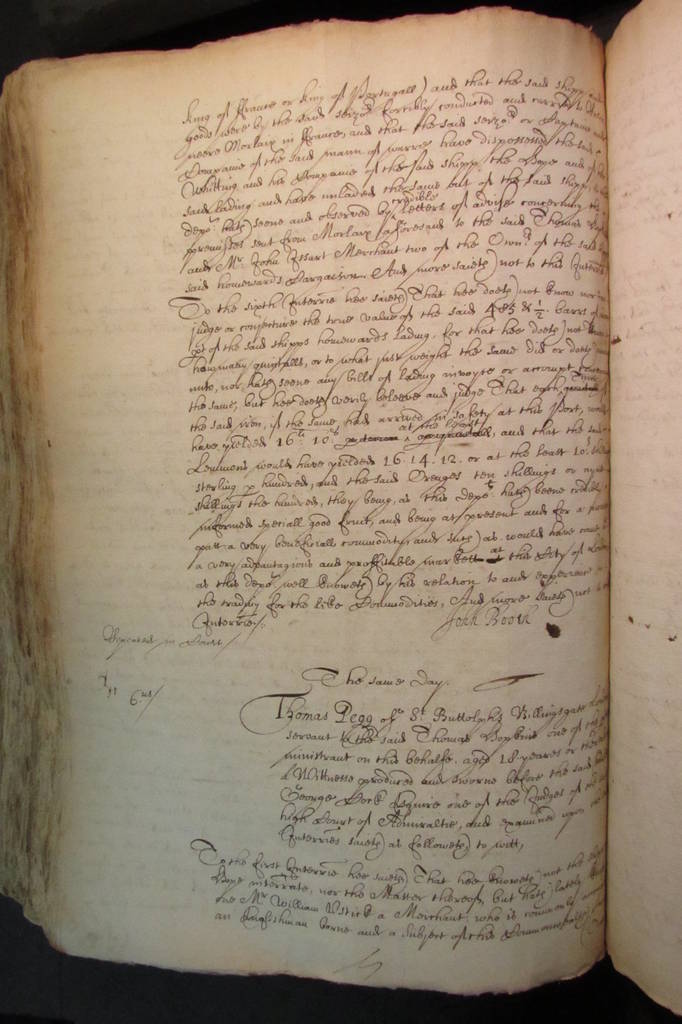 King of France or King of Portugall) and that the said shipp and
goods were by the said seizors forcibly conducted and carried to
neere Morlaix in France, and that the said seizors or Captaine and
Companie of the said mann of warre have dispossessed the said
Whitting and his Companie of the said shipp the Hope and of the
said lading and have unladen the same out of the said shipp,
depot hath seene and observed by credible letters of advise concerning the
premisses sent from Morlaix aforesaid to the said Thomas
and Mr John Mssart Merchant two of the Ownrs of the said
said homewards Cargaison. And more saieth not to this Interrie
To the sixth Interrie hee saieth That hee doeth not know nor
judge or conjecture the true value of the said 485 & ½ barrs of
pt of the said shipps homewards lading, for that hee doeth not
how many quintalls, or to what just weight the same did or doeth
unto, nor hath seene any bills of lading invoyce or accompt
the same, but hee doeth verily beleeve and judge That each
the said iron, if the same had arrived in safety at this Port, would
have yielded 16li 10s at the least, and that the said
Lemmons would have yielded 16. 14. 12. or at the least 10s
sterling p hundred, and the said Orenges ten shillings or nyne
shillings the hundred, they being, as this depot hath beene credibly
informed speciall good fruit, and being at present and for a
past a very beneficiall commodity, and such as would have come
a very advantagious and proffitable markett at this City of London
as this depot well knoweth by his relation to and experience in
the trading for the like Commodities, And more saieth not to
Interrie.
John Booth
Repeated in Court
The same day.
6us
Thomas Pegg of St Buttolphs Billingsgate London
servant to the said Thomas Hopkins one of the
ministrant on this behalfe, aged 18 yeares or thereabouts
a Wittnesse produced and sworne before the said
George Cock Esquire one of the Judges of the
high Court of Admiraltie, and examined upon the
Interries saieth as followeth to witt,
To the first Interrie hee saieth That hee knoweth not the shipp
Hope interrate, nor the Master thereof, but hath lately
one Mr William Ustick a Merchant who is commonly
an Englishman borne and a subject of this Commonwealth